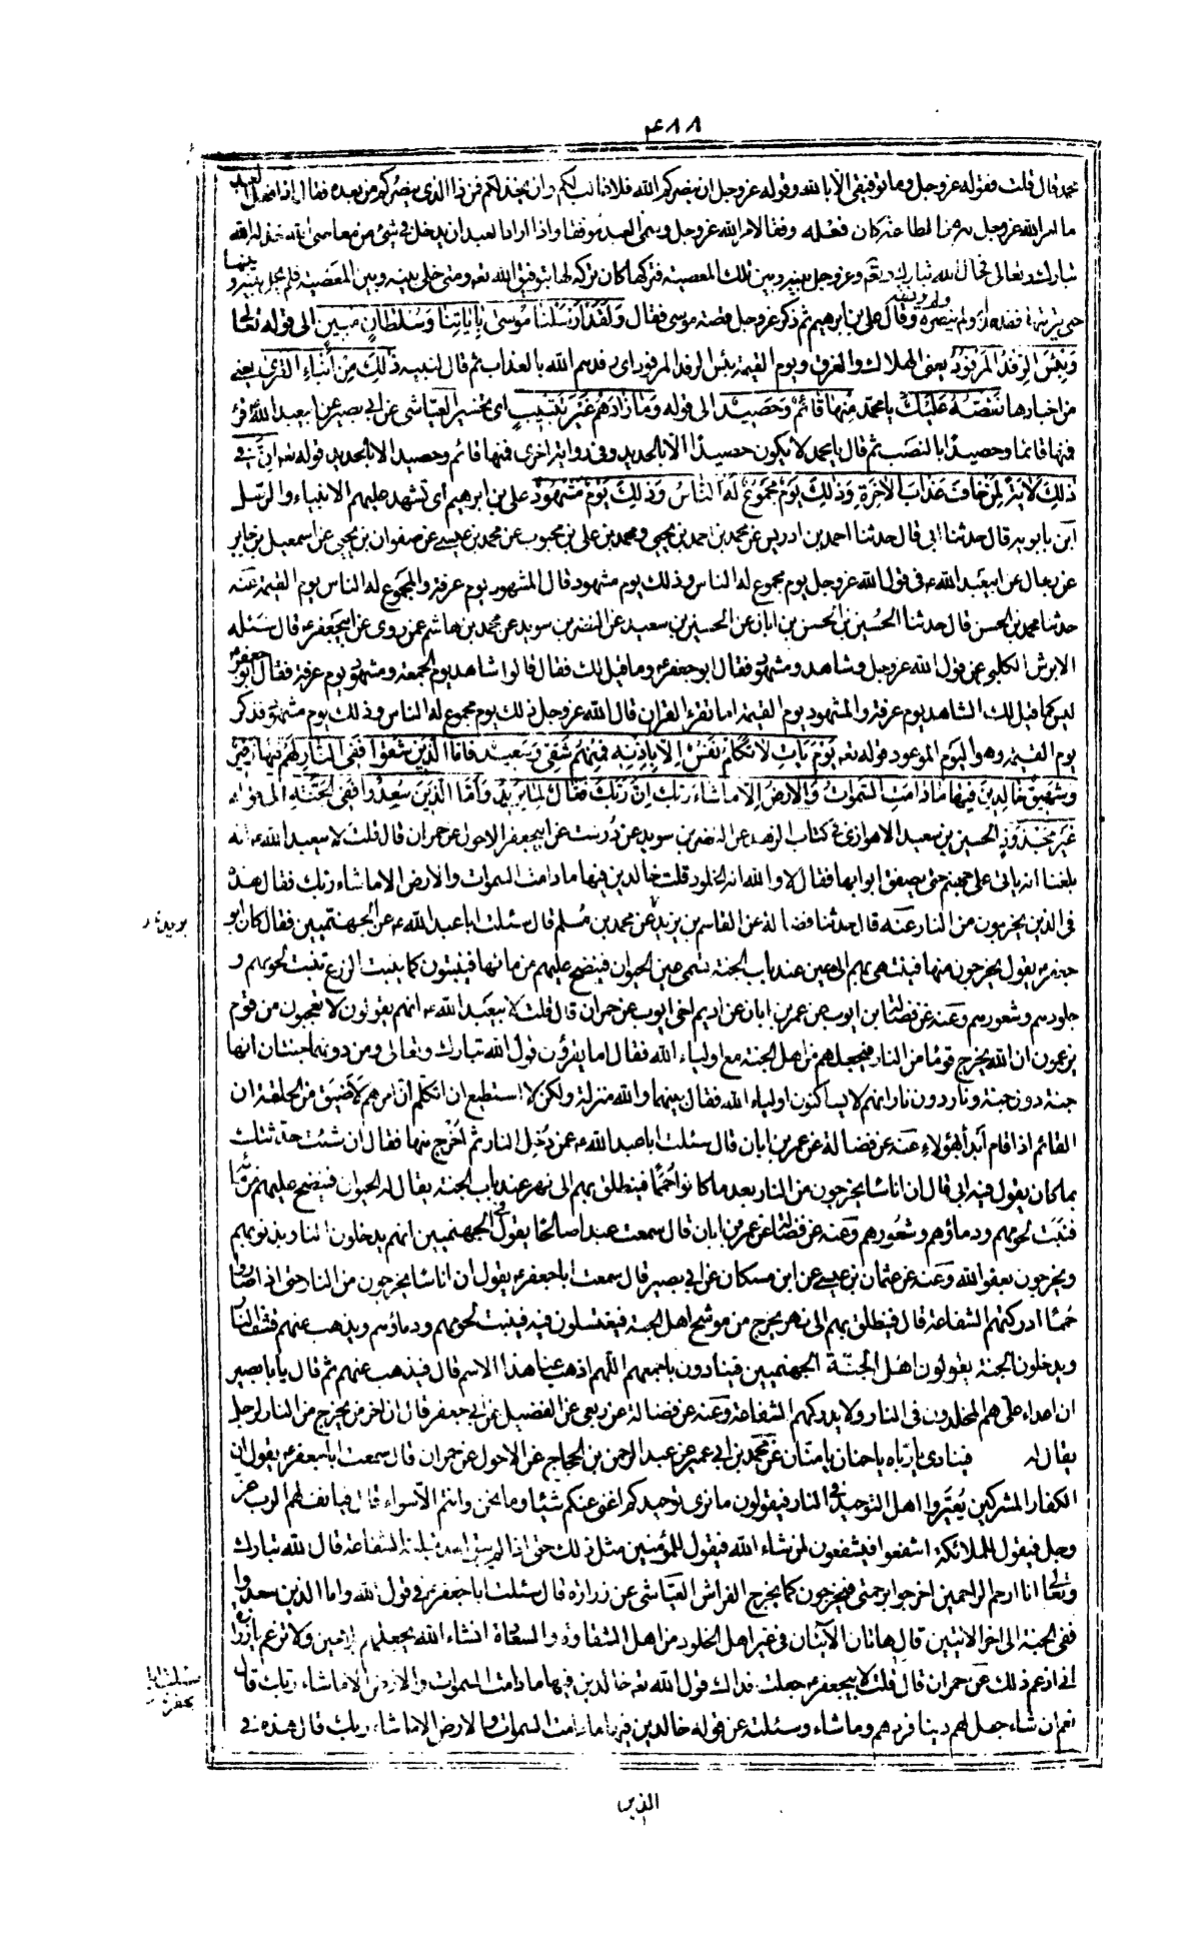 ٤٨٨
محمد قال قلت فقوله عز وجل وما توفيقى الا بالله وقوله عز وجل ان ينصركم الله فلا غالب لكم وان يخذلكم فمن ذا الذى ينصركم من بعده فقال اذا فعل العبد
ما امره الله عز وجل به من الطاعة كان فعله وفقا لامر الله عز وجل وسمى العبد موفقا واذا اراد العبد ان يدخل فى شئ من معاصى الله فحال الله
تبارك وتعالى فحال الله تبارك وتعالى بينه وبين تلك المعصية فتركها كان تركه لها بتوفيق الله تعه ومتى خلى بينه وبين المعصية فلم يحل بينه وبينها
حتى يرتكبها فقد خذله ولم ينصره ولم يوفقه وقال على بن ابرهيم ثم ذكر عز وجل قصة موسى فقال وَلَقَدْ اَرْسَلْنا مُوسى بِاياتِنا وَسُلْطانٍ مبين الى قوله تعالى
وَبِئْسَ الرِفْدُ المَرفُودُ يعنى الهلاك والغرق ويوم القيمة بئس الرفد المرفود اى يرفدهم الله بالعذاب ثم قال لنبيه ذلِكَ مِنْ اَنْباءِ القُرى يعنى
من اخبارها نَقُصّهُ عَلَيْكَ يا محمد مِنْها قائمٌ وَحَصيدٌ الى قوله وَما زادَهُم غَيْرَ تَتْبيبٍ اى تخسير العياشى عن ابى بصير عن ابيعبد الله ع قرء
فمنها قائما وحصيدًا بالنصب ثم قال يا محمد لا يكون حصيدًا الا بالحديد وفى رواية اخرى فمنها قائم وحصيد الا بالحديد قوله تعه اِنَّ فى
ذلِكَ لايَةً لِمَنْ خافَ عَذابَ الاخِرَةِ وَذلِكَ يَوْمٌ مَجْمُوعٌ لَهُ النّاسُ وَذلِكَ يَوْمٌ مَشْهُودٌ على بن ابرهيم اى تشهد عليهم الانبياء والرسل
ابن بابويه قال حدثنا ابى قال حدثنا احمد بن ادريس عن محمد بن احمد بن يحيى ومحمد بن على بن محبوب عن محمد بن عيسى عن صفوان بن يحيى عن اسمعيل بن جابر
عن رجال عن ابيعبد الله ع فى قول الله عز وجل يوم مجموع له الناس وذلك يوم مشهود قال المشهود يوم عرفة والمجموع له الناس يوم القيمة عنه
حدثنا محمد بن الحسن قال حدثنا الحسين بن الحسن بن ابان عن الحسين بن سعيد عن النضر بن سويد عن محمد بن هاشم عمن روى عن ابيجعفر ع قال سئله
الابرش الكلبى عن قول الله عز وجل وشاهد ومشهود فقال ابو جعفر ع وما قيل لك فقال قالوا شاهد يوم الجمعة ومشهود يوم عرفة فقال ابو جعفر ع
ليس كما قيل لك الشاهد يوم عرفة والمشهود يوم القيمة اما تقرء القران قال الله عز وجل ذلك يوم مجموع له الناس وذلك يوم مشهود فذكر
يوم القيمة وهو اليوم الموعود قوله تعه يَوْمَ يَاتِ لا تَكَلَّمُ نَفْسٌ اِلاّ بِاِذْنِه فَمِنْهُمْ شَقِىٌّ وَسَعيدٌ فَاَمّا الَّذينَ شَقُوا فَفِى النّارِ لَهُمْ فيها زَفيرٌ
وشَهيقٌ خالِدينَ فيها ما دامَتِ السَّمواتُ وَالاَرْضُ اِلاّ ما شاءَ رَبُّكَ اِنَّ رَبَّكَ فَعّالٌ لِما يُريدُ وَاَمَّا الَّذينَ سُعِدُوا فَفِى الْجَنَّةِ الى قوله
غَيْرَ مَجْذُوذٍ الحسين بن سعيد الاهوازى فى كتاب الزهد عن النضر بن سويد عن درست عن ابيجعفر الاحول عن حمران قال قلت لابيعبد الله ع انه
بلغنا انه ياتى على جهنم حتى يصفق ابوابها فقال لا والله انه الخلود قلت خالدين فيها ما دامت السموات والارض الا ما شاء ربك فقال هذه
فى الذين يخرجون من النار عنه قال حدثنا فضالة عن القاسم بن بريد عن محمد بن مسلم قال سئلت ابا عبد الله ع عن الجهنميين فقال كان ابو
جعفر ع يقول يخرجون منها فينتهى بهم الى عين عند باب الجنة تسمى عين الحيوان فينضح عليهم من مائها فينبتون كما ينبت الزرع تنبت لحومهم و
جلودهم وشعورهم وعنه عن فضالة بن ايوب عن عمر بن ابان عن اديم اخى ايوب عن حمران قال قلت لابيعبد الله ع انهم يقولون لا تعجبون من قوم
يزعمون ان الله يخرج قوما من النار فيجعلهم من اهل الجنة مع اولياء الله فقال اما يقرؤن قول الله تبارك وتعالى ومن دونهما جنتان انها
جنة دون جنة ونار دون نار انهم لا يساكنون اولياء الله فقال بينهما والله منزلة ولكن لا استطيع ان اتكلم ان امرهم لاضيق من الحلقة ان
القائم اذا قام لبدأ بهؤلاء عنه عن فضالة عن عمر بن ابان قال سئلت ابا عبد الله ع عمن دخل النار ثم اُخرج منها فقال ان شئت حدثتك
بما كان يقول فيه ابى قال ان اناسا يخرجون من النار بعد ما كانوا حمما فينطلق بهم الى نهر عند باب الجنة يقال له الحيوان فينضح عليهم من مائه
فتنبت لحومهم ودماؤهم وشعورهم وعنه عن فضالة عن عمر بن ابان قال سمعت عبدا صالحا يقول فى الجهنميين انهم يدخلون النار بذنوبهم
ويخرجون بعفو الله وعنه عن عثمان بن عيسى عن ابن مسكان عن ابى بصير قال سمعت ابا جعفر ع يقول ان اناسا يخرجون من النار حتى اذا صاروا
حُمَمًا ادركتهم الشفاعة قال فينطلق بهم الى نهر يخرج من موشح اهل الجنة فيغتسلون فيه فينبت لحومهم ودماؤهم ويذهب عنهم قشف النار
ويدخلون الجنة يقولون اهل الجنة الجهنميين فينادون باجمعهم اللهم اذهب عنا هذا الاسم قال فيذهب عنهم ثم قال يا ابا بصير
ان اعداء على هم المخلدون فى النار ولا يدركهم الشفاعة وعنه عن فضالة عن ربعى عن الفضيل عن ابى جعفر قال ان اخر من يخرج من النار لرجل
يقال له فينادى يا رباه يا حنان يا منان عن محمد بن ابى عمير عن عبد الرحمن بن الحجاج عن الاحول عن حمران قال سمعت ابا جعفر ع يقول ان
الكفار المشركين يُعيّروا اهل التوحيد فى النار فيقولون ما نرى توحيدكم اغنى عنكم شيئا وما نحن وانتم الا سواء قال فيانف لهم الرب عز
وجل فيقول للملائكة اشفعوا فيشفعون لمن شاء الله فيقول للمؤمنين مثل ذلك حتى اذا لم يبق احد تبلغه الشفاعة قال الله تبارك
وتعالى انا ارحم الراحمين اخرجوا برحمتى فيخرجون كما يخرج الفراش العياشى عن زرارة قال سئلت ابا جعفر ع فى قول الله واما الذين سعدوا
ففى الجنة الى اخر الايتين قال هاتان الآيتان فى غير اهل الخلود من اهل الشقاوة والسعادة انشاء الله يجعلهم خارجين ولا تزعم يا زرارة
انى ازعم ذلك عن حمران قال قلت لابيجعفر ع جعلت فداك قول الله تعه خالدين فيها ما دامت السموات والارض الا ما شاء ربك قال
نعم ان شاء جعل لهم دينا فردهم وما شاء وسئلته عن قوله خالدين فيها ما دامت السموات والارض الا ما شاء ربك قال هذه فى
بريد
سئلت ابا
جعفر ع
الذين